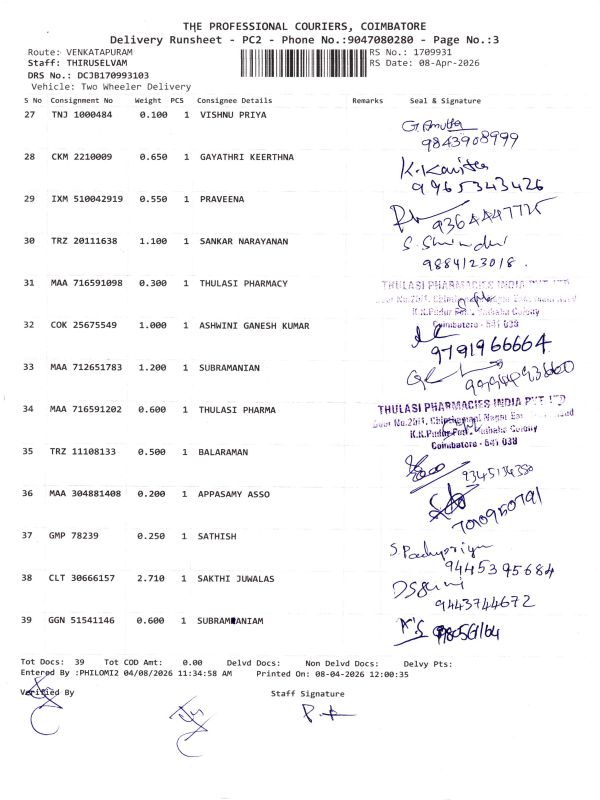 THE PROFESSIONAL COURIERS, COIMBATORE
Delivery Runsheet - PC2 - Phone No.:9047080280 - Page No.:3
Route: VENKATAPURAM
RS No.: 1709931
Staff: THIRUSELVAM
RS Date: 08-Apr-2026
DRS No.: DCJB170993103
Vehicle: Two Wheeler Delivery
S No Consignment No Weight PCS Consignee Details Remarks Seal & Signature
27 TNJ 1000484 0.100 1 VISHNU PRIYA
9843908999
28 CKM 2210009 0.650 1 GAYATHRI KEERTHNA
K. Kavitha
9965343426
29 IXM 510042919 0.550 1 PRAVEENA
30 TRZ 20111638 1.100 1 SANKAR NARAYANAN
9884123018.
31 MAA 716591098 0.300 1 THULASI PHARMACY
THULASI PHARMACIES INDIA PVT LTD
Coimbatore - 641 038
32 COK 25675549 1.000 1 ASHWINI GANESH KUMAR
9791966664
33 MAA 712651783 1.200 1 SUBRAMANIAN
34 MAA 716591202 0.600 1 THULASI PHARMA
THULASI PHARMACIES INDIA PVT LTD
Coimbatore - 641 038
35 TRZ 11108133 0.500 1 BALARAMAN
36 MAA 304881408 0.200 1 APPASAMY ASSO
7010950791
37 GMP 78239 0.250 1 SATHISH
9445395684
38 CLT 30666157 2.710 1 SAKTHI JUWALAS
9443744672
39 GGN 51541146 0.600 1 SUBRAMANIAM
Tot Docs: 39 Tot COD Amt: 0.00 Delvd Docs: Non Delvd Docs: Delvy Pts:
Entered By :PHILOMI2 04/08/2026 11:34:58 AM Printed On: 08-04-2026 12:00:35
Verified By Staff Signature